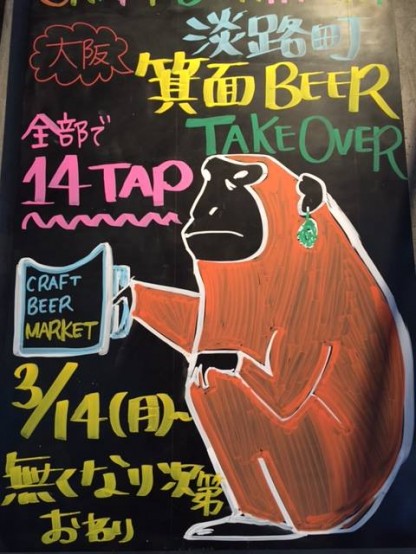 大阪
淡路町
箕面 BEER
TAKE OVER
全部で
14 TAP
CRAFT
BEER
MARKET
3/14(月)~
無くなり次第
おわり